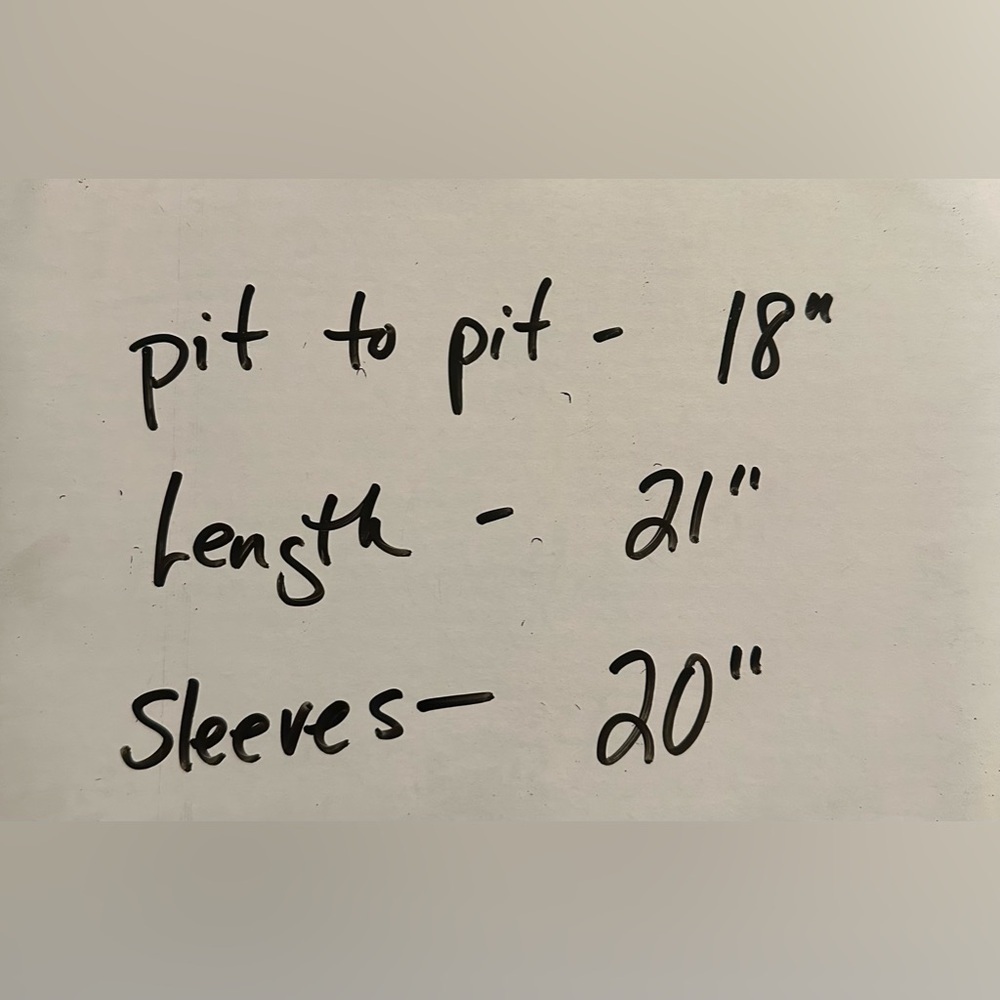 pit to pit - 18"
Length - 21"
Sleeves - 20"